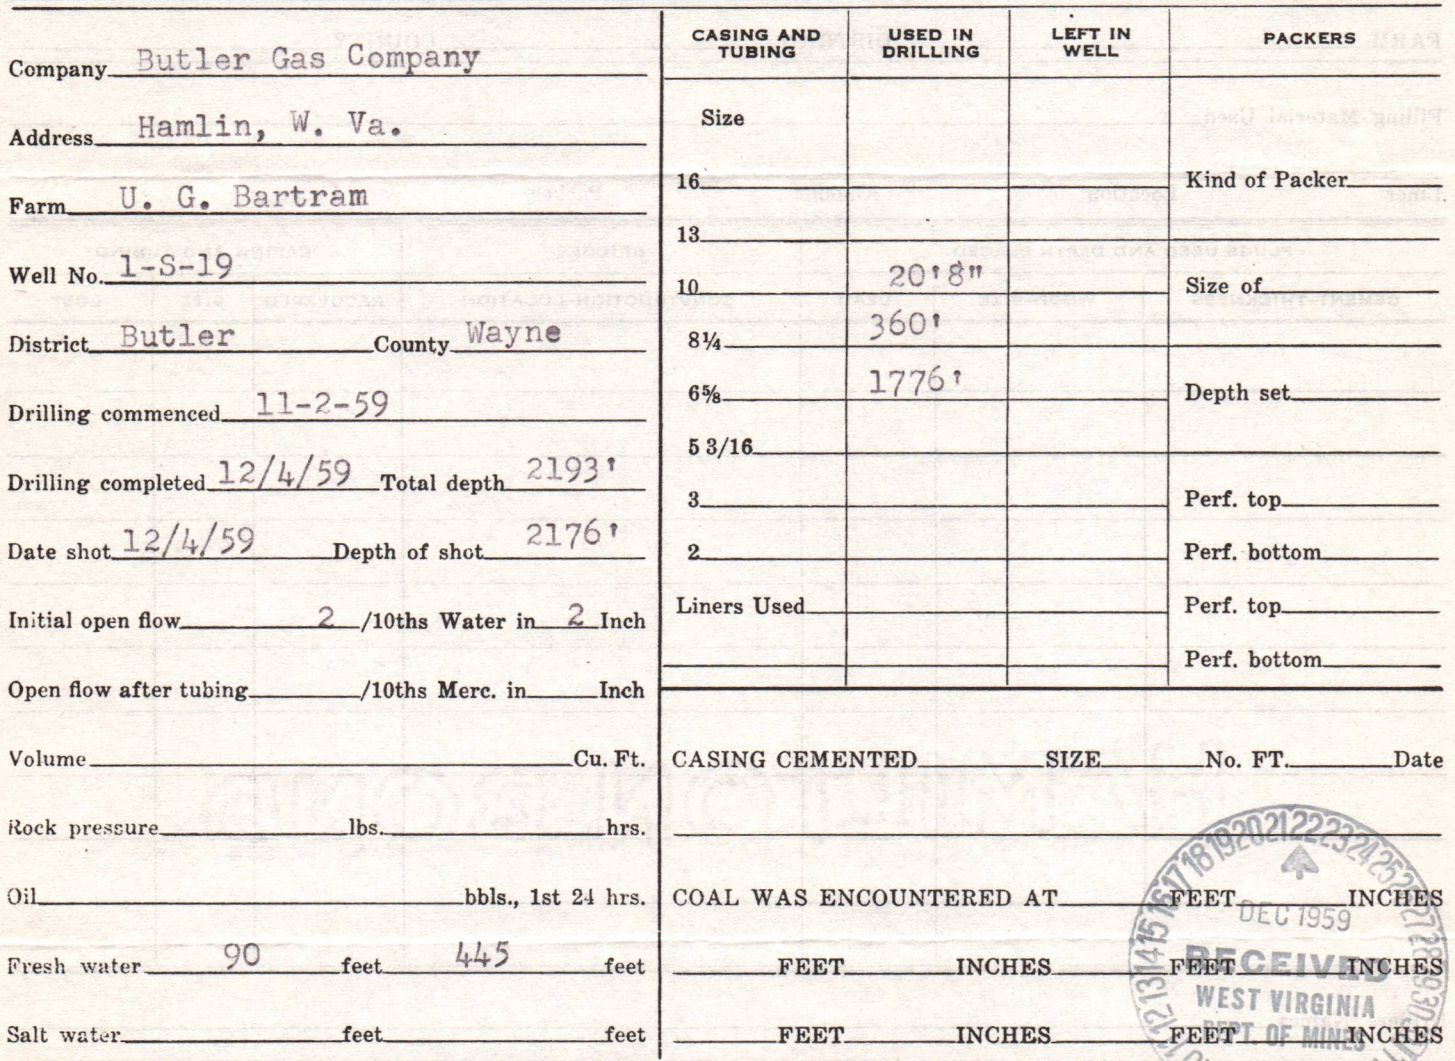 Company Butler Gas Company
Address Hamlin, W. Va.
Farm U. G. Bartram
Well No. 1-S-19
District Butler County Wayne
Drilling commenced 11-2-59
Drilling completed 12/4/59 Total depth 2193'
Date shot 12/4/59 Depth of shot 2176'
Initial open flow 2 /10ths Water in 2 Inch
Open flow after tubing /10ths Merc. in Inch
Volume Cu. Ft.
Rock pressure lbs. hrs.
Oil bbls., 1st 24 hrs.
Fresh water 90 feet 445 feet
Salt water feet feet
CASING AND TUBING USED IN DRILLING LEFT IN WELL PACKERS
Size
16 Kind of Packer
13
10 20'8" Size of
8¼ 360'
6⅝ 1776' Depth set
5 3/16
3 Perf. top
2 Perf. bottom
Liners Used Perf. top
Perf. bottom
CASING CEMENTED SIZE No. FT. Date
COAL WAS ENCOUNTERED AT FEET INCHES
FEET INCHES FEET INCHES
FEET INCHES FEET INCHES
12 13 14 15 16 17 18 19 20 21 22 23 24 25 26 27 28 29 30
DEC 1959
RECEIVED
WEST VIRGINIA
DEPT. OF MINES